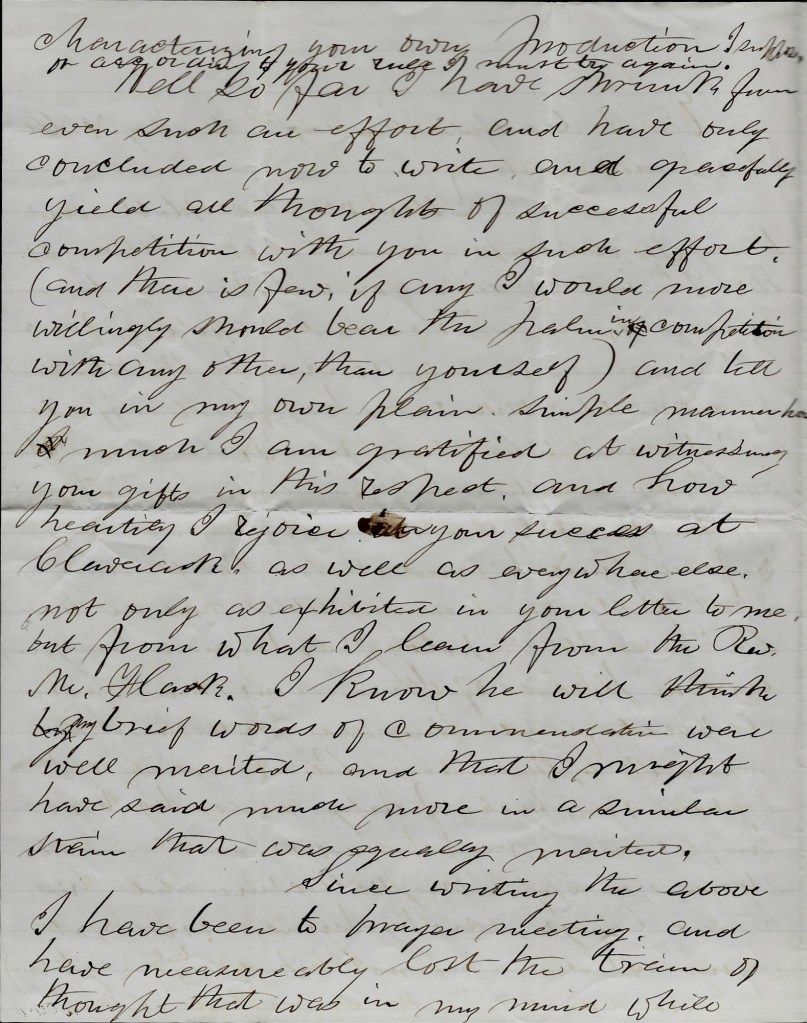 characterizing your own production I suppose,
or according to your rule I must try again.
Well so far I have shrunk from
even such an effort, and have only
concluded now to write, and gracefully
yield all thought of successful
competition with you in such effort.
(and there is few, if any I would more
willingly should bear the palm in competition
with any other, than yourself) and tell
you in my own plain simple manner how
much I am gratified at witnessing
your gifts in this respect, and how
heartily I rejoice at your success at
Claverack, as well as everywhere else.
not only as exhibited in your letter to me,
but from what I learn from the Rev.
Mr. Flack. I know he will think
my brief words of commendation were
well merited, and that I might
have said much more in a similar
strain that was equally merited.
Since writing the above
I have been to prayer meeting, and
have measureably lost the train of
thought that was in my mind while